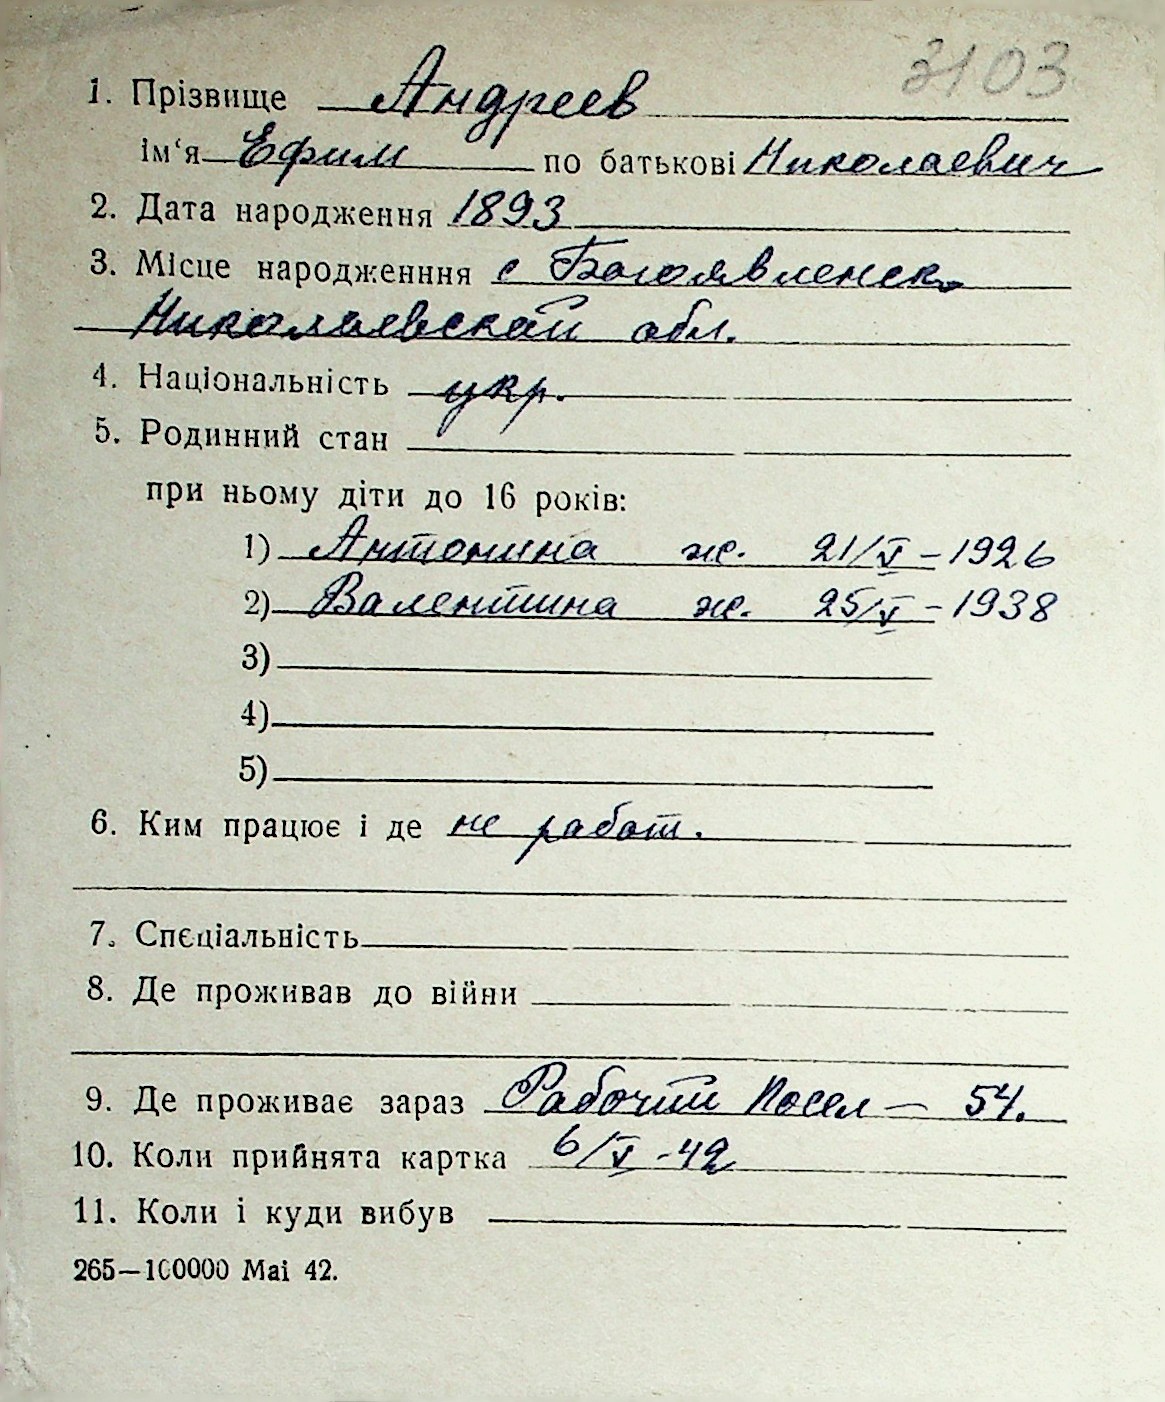 3103
1. Прізвище Андреев
ім‘я Ефим по батькові Николаевич
2. Дата народження 1893
3. Місце народженння с Богоявленск
Николаевской обл.
4. Національність укр.
5. Родинний стан
при ньому діти до 16 років:
1) Антонина ж. 21/V – 1926
2) Валентина ж. 25/V – 1938
3)
4)
5)
6. Ким працює і де не работ.
7. Спєціальність
8. Де проживав до війни
9. Де проживає зараз Рабочий Посел – 54.
10. Коли прийнята картка 6/V -42
11. Коли і куди вибув
265—100000 Mai 42.